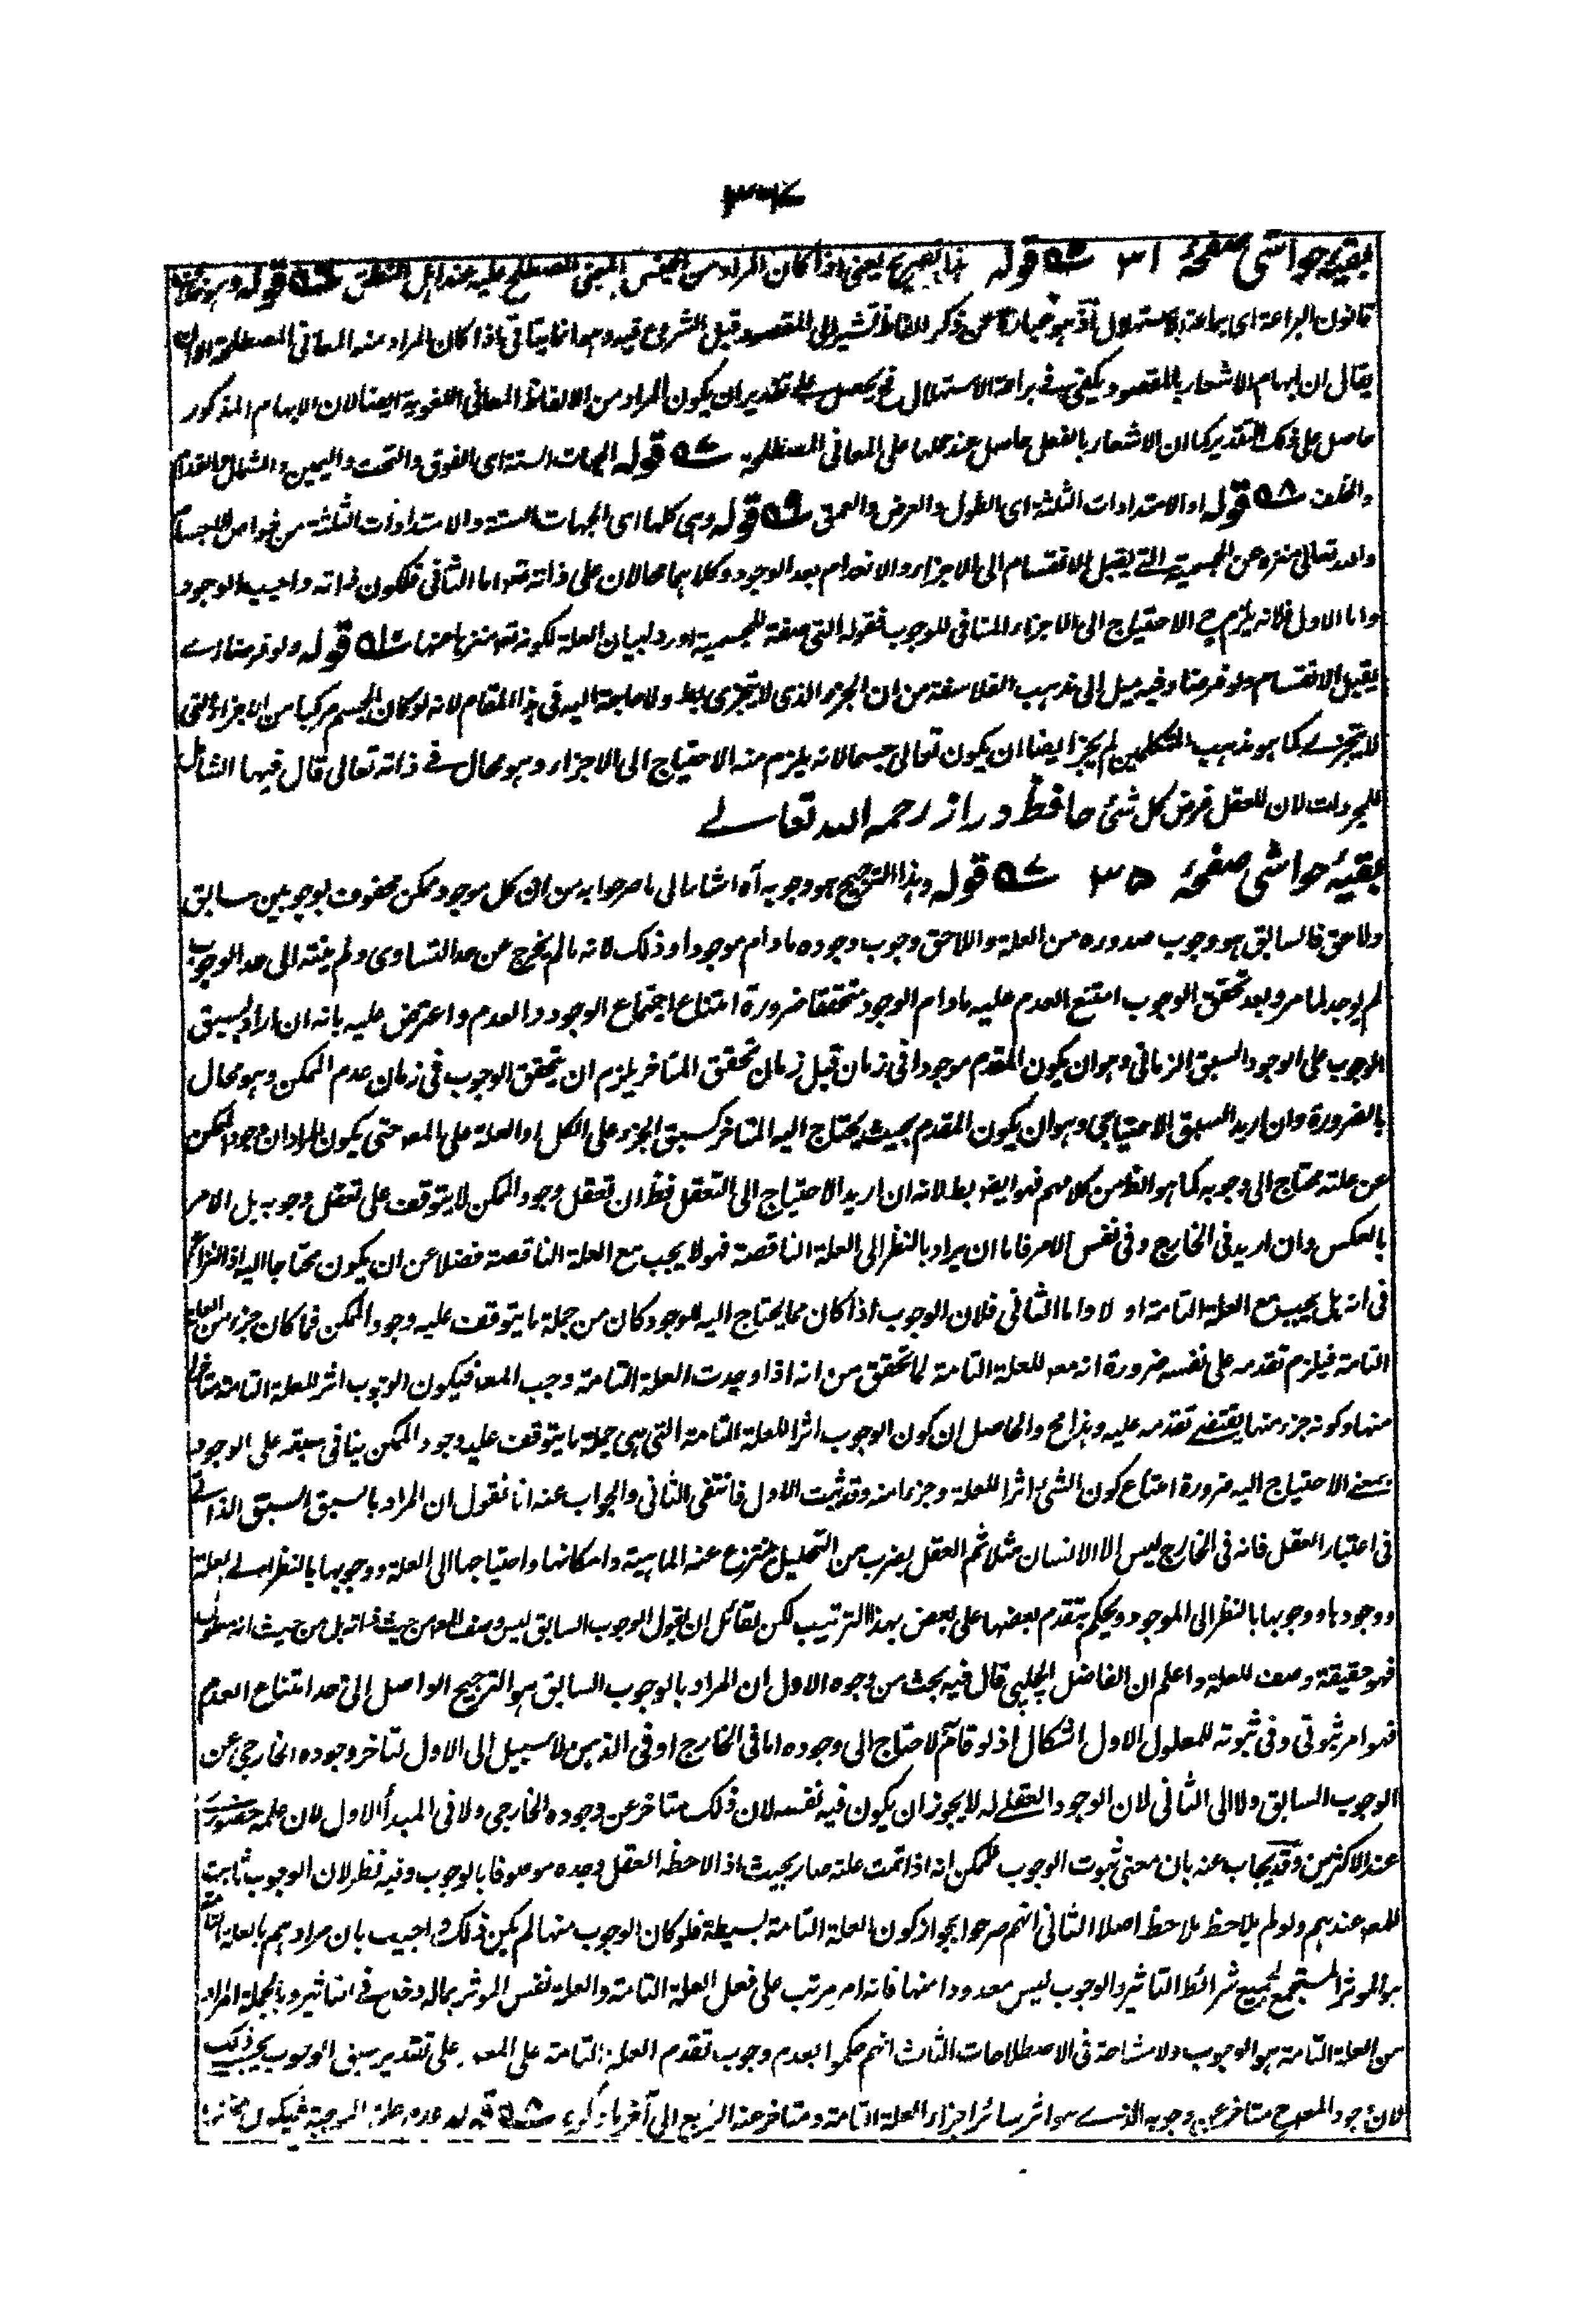 ٣٣٧
بقيۀ حواشى صفحۀ ٣١ ٥٥ قوله يعنى اذا كان المراد من الجنس المعنى المصطلح عليه عند اهل المنطق ٥٦ قوله وهو
قانون البراعة اى براعة الاستهلال اذ هو عبارة عن ذكر الفاظ تشير الى المقصود قبل الشروع فيه وهو انما يتاتى اذا كان المراد منه المعانى المصطلحة
يقال ان ايهام الاشعار بالمقصود يكفى فى براعة الاستهلال فح يحصل على تقدير ان يكون المراد من الالفاظ المعانى اللغوية ايضا لان الايهام المذكور
حاصل على ذلك التقدير كما ان الاشعار بالفعل حاصل عند حملها على المعانى المصطلحة ٥٧ قوله الجهات الستة اى الفوق والتحت واليمين والشمال والقدام
والخلف ٥٨ قوله او الامتدادات الثلثة اى الطول والعرض والعمق ٥٩ قوله وهى كلها اى الجهات الستة والامتدادات الثلثة من خواص الاجسام
والله تعالى منزه عن الجسمية التى يقبل الانقسام الى الاجزاء والانعدام بعد الوجود وكلاهما محالان على ذاته تعه اما الثانى فلكون ذاته واجب الوجود
واما الاول فلانه يلزم ح الاحتياج الى الاجزاء المنافى للوجوب فقوله التى صفة للجسمية اورد لبيان العلة لكونه تعه منزها عنها ٥١٠ قوله ولو فرضا اے
يقبل الانقسام ولو فرضا وفيه ميل الى مذهب الفلاسفة من ان الجزء الذى لا يتجزى بط ولا حاجة اليه فى هذا المقام لانه لو كان الجسم مركبا من الاجزاء التى
لا يتجزے كما هو مذهب المتكلمين لم يجز ايضا ان يكون تعالى جسما لانه يلزم منه الاحتياج الى الاجزاء وهو محال فى ذاته تعالى قال فيها الشامل
للمجردات لان للعقل فرض كل شئ حافظ دراز رحمه الله تعالے
بقيۀ حواشى صفحۀ ٣٥ ٥٧ قوله وهذا الترجيح هو وجوبه آه اشارة الى ما صرحوا به من ان كل موجود ممكن محفوف بوجوبين سابق
ولاحق فالسابق هو وجوب صدوره من العلة واللاحق وجوب وجوده مادام موجودا وذلك لانه مالم يخرج عن حد التساوى ولم ينته الى حد الوجوب
لم يوجد لما مر وبعد تحقق الوجوب امتنع العدم عليه مادام الوجود متحققا ضرورة امتناع اجتماع الوجود والعدم واعترض عليه بانه ان اراد بسبق
الوجوب على الوجود السبق الزمانى وهو ان يكون المقدم موجودا فى زمان قبل زمان تحقق المتاخر يلزم ان يتحقق الوجوب فى زمان عدم الممكن وهو محال
بالضرورة وان اريد السبق الاحتياجى وهو ان يكون المقدم بحيث يحتاج اليه المتاخر كسبق الجزء على الكل او العلة على المعه حتى يكون المراد ان وجود الممكن
عن علته محتاج الى وجوبه كما هو الظ من كلامهم فهو ايضه بط لانه ان اريد الاحتياج الى التعقل فظ ان تعقل وجود الممكن لا يتوقف على تعقل وجوبه بل الامر
بالعكس وان اريد فى الخارج وفى نفس الامر فاما ان يراد بالنظر الى العلة الناقصة فهو لا يجب مع العلة الناقصة فضلا عن ان يكون محتاجا اليه اذ النزاع
فى انه هل يجب مع العلة التامة او لا واما الثانى فلان الوجوب اذا كان مما يحتاج اليه الوجود كان من جملة ما يتوقف عليه وجود الممكن فكان جزء من العلة
التامة فيلزم تقدمه على نفسه ضرورة انه معه للعلة التامة لما تحقق من انه اذا وجدت العلة التامة وجب المعه فيكون الوجوب اثر للعلة التامة متاخرا
منها وكونه جزء منها يقتضے تقدمه عليه وهذا مح والحاصل ان كون الوجوب اثرا للعلة التامة التى هى جملة ما يتوقف عليه وجود الممكن ينافى سبقه على الوجود
بمعنے الاحتياج اليه ضرورة امتناع كون الشئ اثرا للعلة وجزءا منه وقد ثبت الاول فانتفى الثانى والجواب عنه انا نقول ان المراد بالسبق السبق الذاتے
فى اعتبار العقل فانه فى الخارج ليس الا الانسان مثلا ثم العقل بضرب من التحليل ينتزع عنه الماهية وامكانها واحتياجها الى العلة ووجوبها بالنظر الے العلة
ووجودها ووجوبها بالنظر الى الموجود ويحكم بتقدم بعضها على بعض بهذا الترتيب لكن لقائل ان يقول الوجوب السابق ليس وصف المعه من حيث ذاته بل من حيث انه معلول
فهو حقيقة وصف للعلة واعلم ان الفاضل الچلپى قال فيه بحث من وجوه الاول ان المراد بالوجوب السابق هو الترجيح الواصل الى حد امتناع العدم
فهو امر ثبوتى وفى ثبوته للمعلول الاول اشكال اذ لو قام لاحتاج الى وجوده اما فى الخارج او فى الذهن لا سبيل الى الاول لتاخر وجوده الخارجى عن
الوجوب السابق ولا الى الثانى لان الوجود العقلے له لا يجوز ان يكون فيه نفسه لان ذلك متاخر عن وجوده الخارجى ولا فى المبدأ الاول لان علمه حضورے
عند الاكثرين وقد يجاب عنه بان معنى ثبوت الوجوب للممكن انه اذا تمت علته صار بحيث اذا لاحظه العقل وجده موصوفا بالوجوب وفيه نظر لان الوجوب ثابت
للمعه عندهم ولو لم يلاحظ ملاحظ اصلا الثانى انهم صرحوا بجواز كون العلة التامة بسيطة فلو كان الوجوب منها لم يكن ذلك واجيب بان مرادهم بالعلة التامة
هو الموثر المستجمع لجميع شرائط التاثير والوجوب ليس معدودا منها فانه امر مرتب على فعل العلة التامة والعلة نفس الموثر بماله دخل فے التاثير وبالجملة المراد
من العلة التامة هو الوجوب ولا مشاحة فى الاصطلاحات الثالث انهم حكموا بعدم وجوب تقدم العلة التامة على المعه وعلى تقدير سبق الوجوب يجب ذلك
لان وجود المعه ح متاخر عن وجوبه الذے هو اثر سائر اجزاء العلة التامة ومتاخر عنه الى آخر ما ذكره ٥٨ قوله